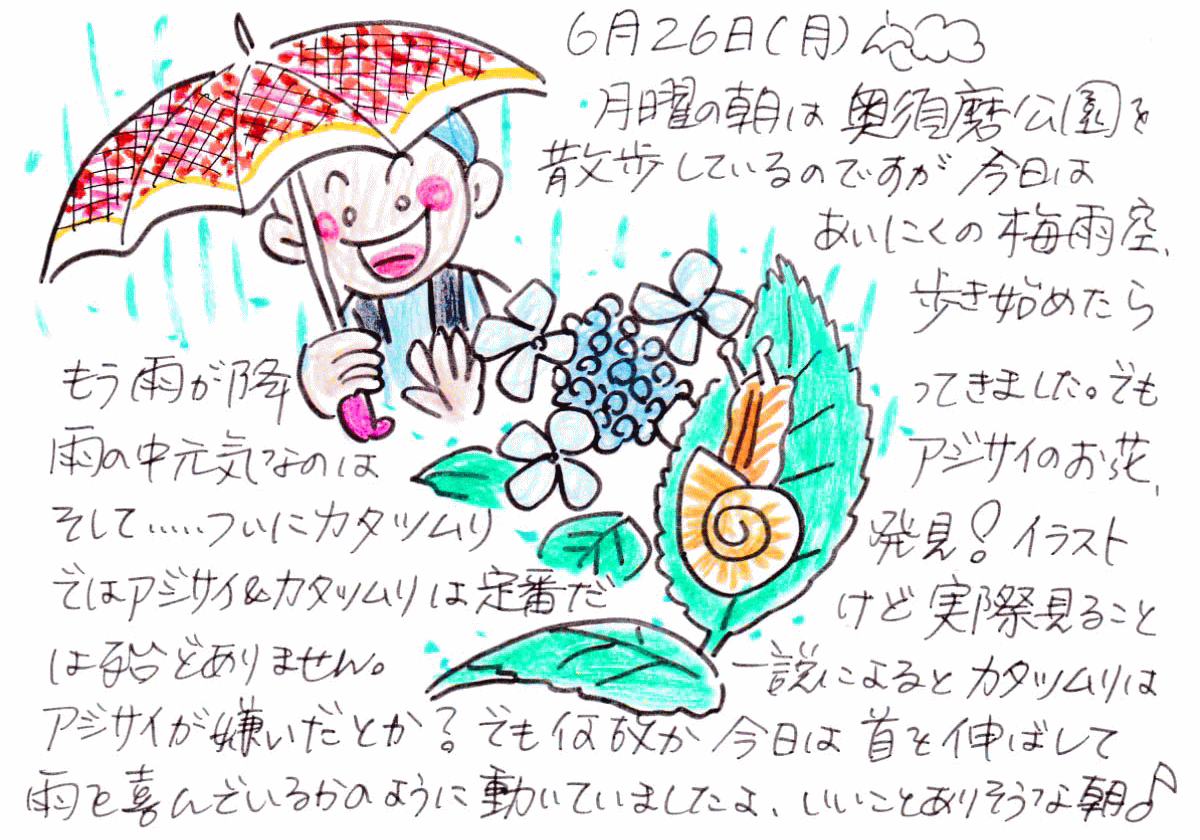 6月26日(月)
月曜の朝は奥須磨公園を
散歩しているのですが今日は
あいにくの梅雨空、
歩き始めたら
もう雨が降ってきました。でも
雨の中元気なのはアジサイのお花、
そして……ついにカタツムリ発見!イラスト
ではアジサイ&カタツムリは定番だけど実際見ること
は殆どありません。一説によるとカタツムリは
アジサイが嫌いだとか?でも何故か今日は首を伸ばして
雨を喜んでいるかのように動いていましたよ、いいことありそうな朝♪